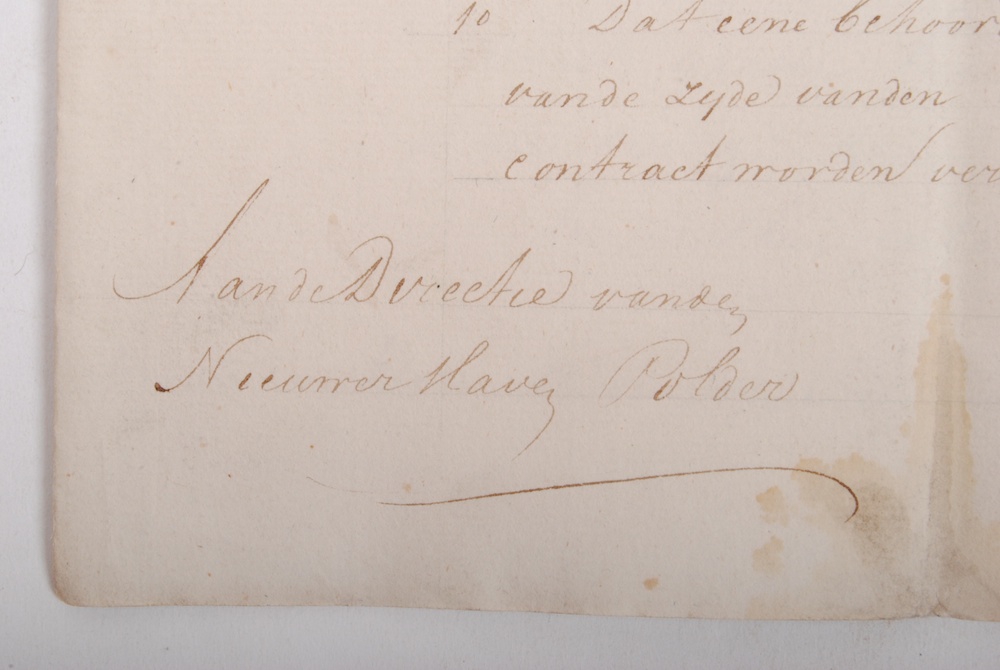 1o Dat eene behoor
vande zyde vanden
contract worden ver
Aan de Directie vanden
Nieuwer Haven Polder